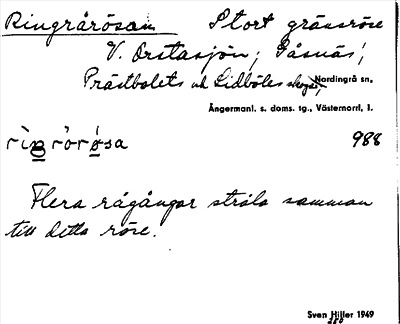 Ringrårösan Stort gränsröse
V. Orstasjön; Gåsnäs,
Prästbolets och Lidböles skogar, Nordingrå sn,
Ångermanl. s. doms. tg., Västernorrl. l.
rìŋròrǿsa 988
Flera rågångar stråla samman
till detta röse.
Sven Hiller 1949